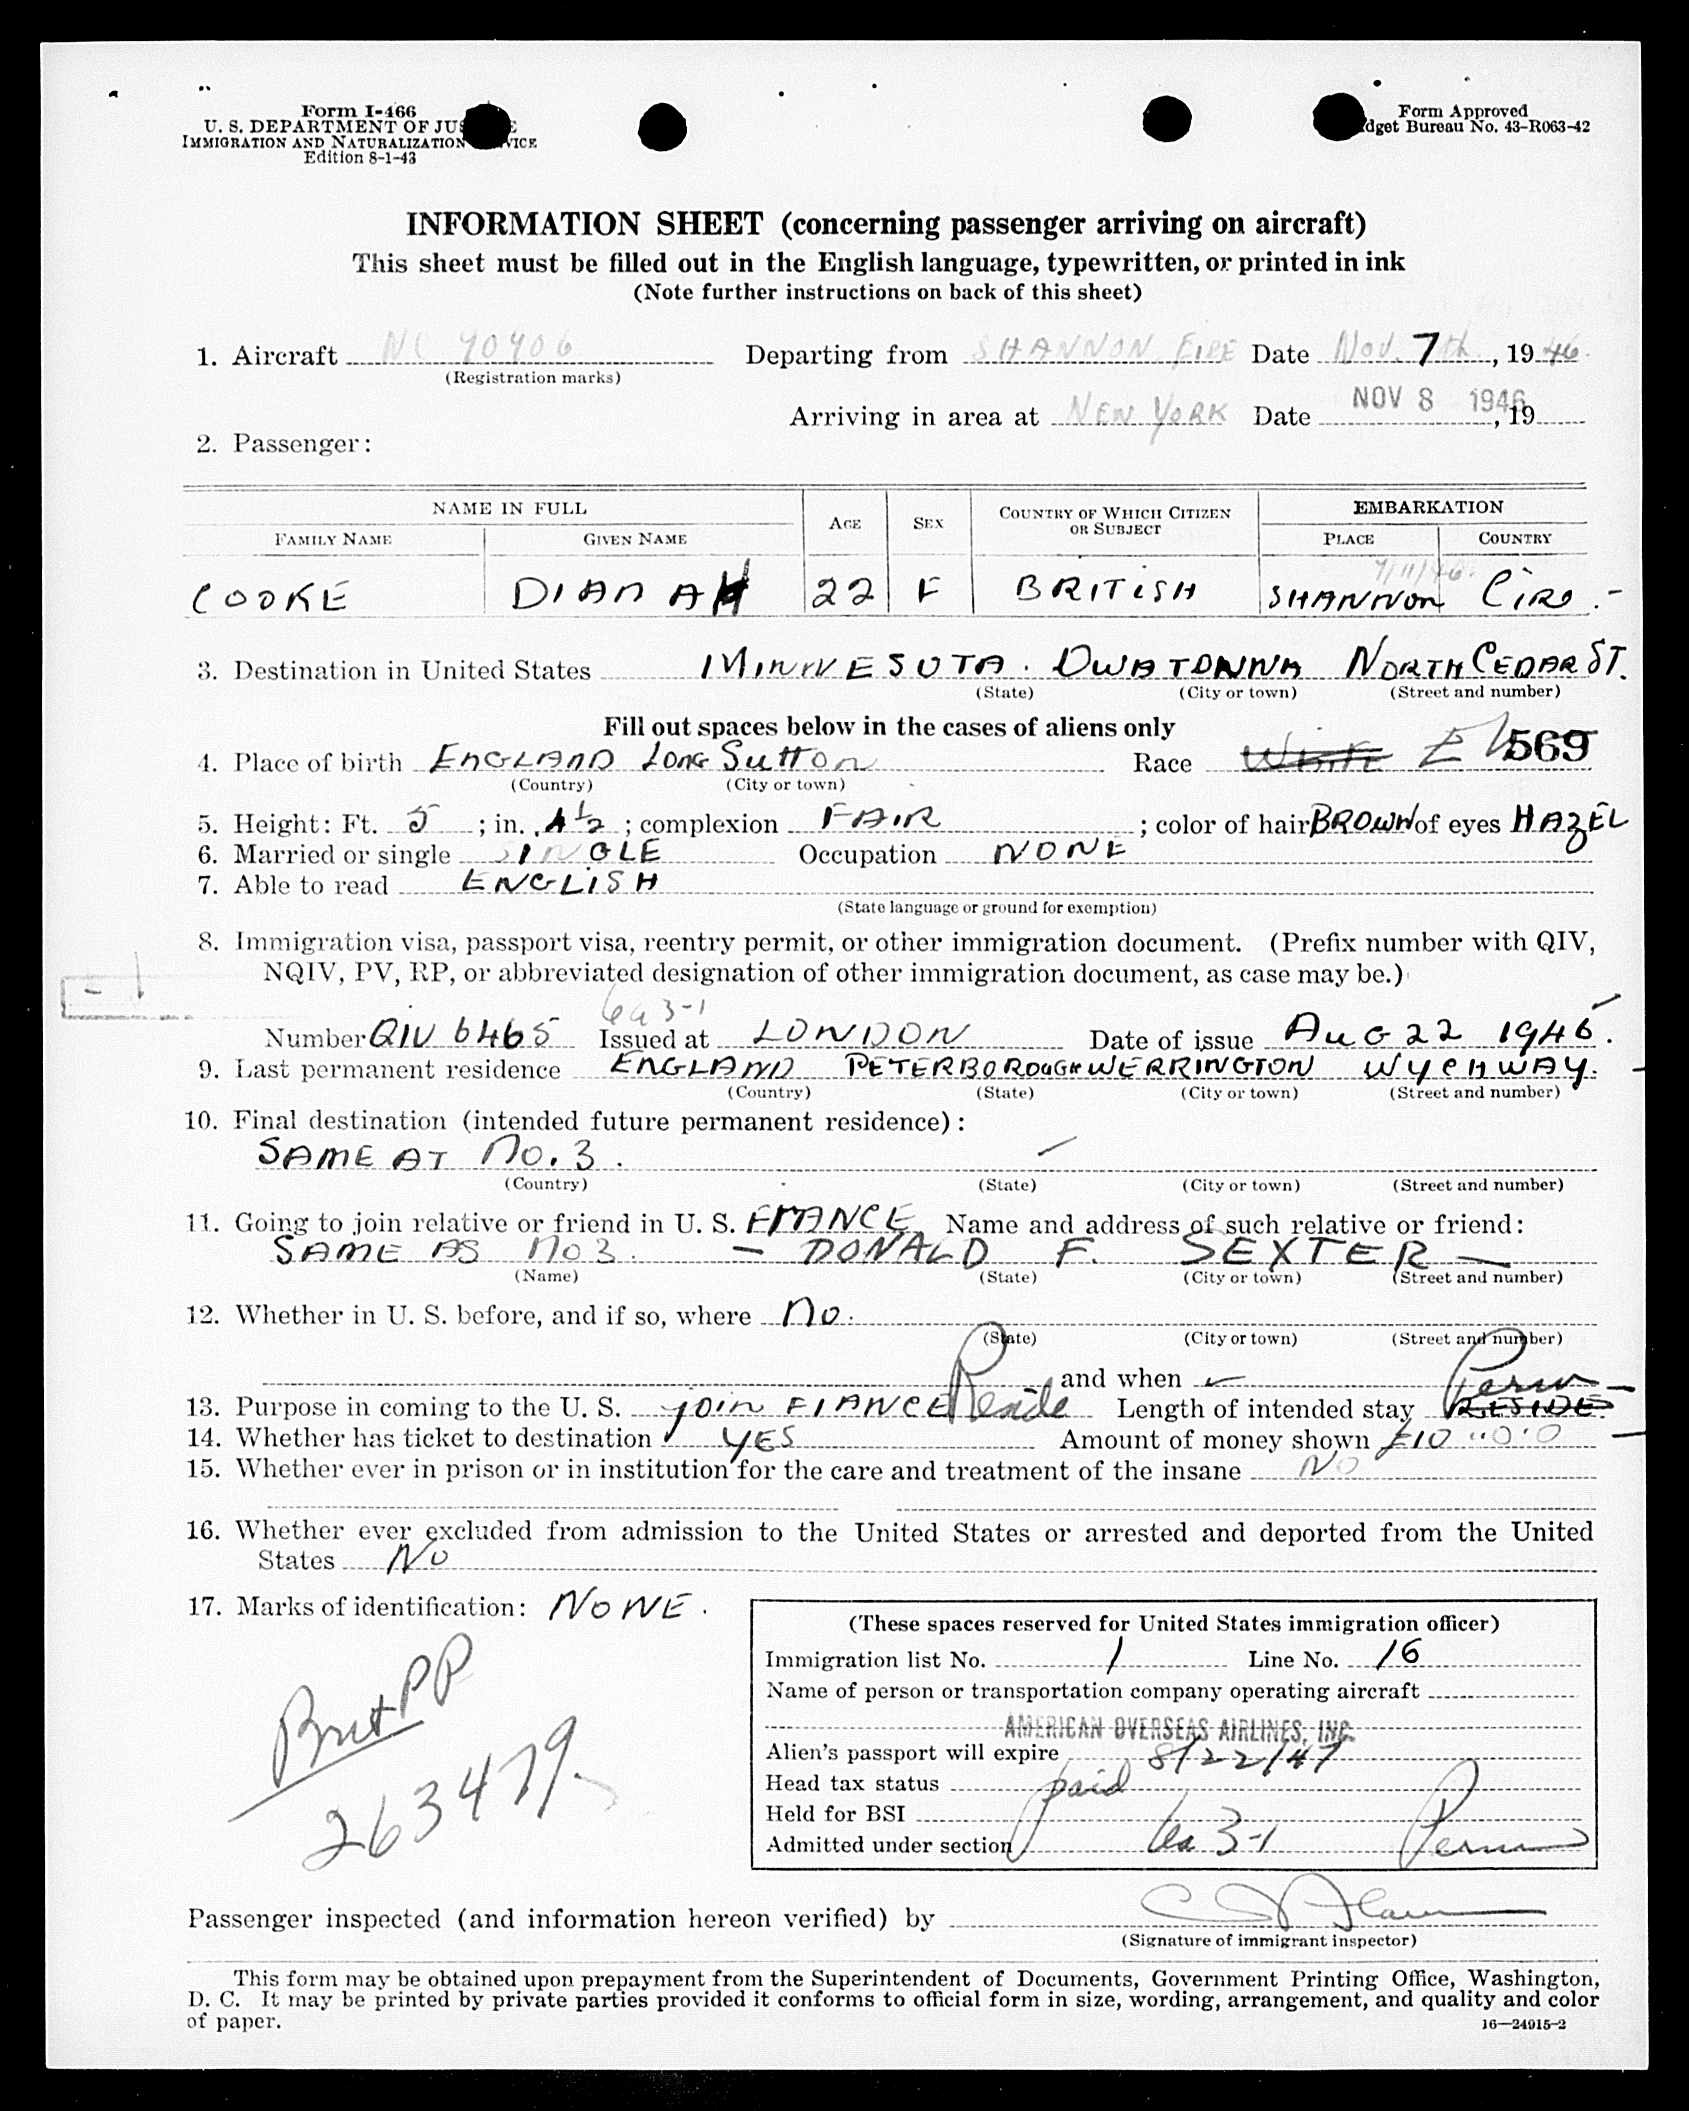 Form I-466
U. S. DEPARTMENT OF JUS E
IMMIGRATION AND NATURALIZATION VICE
Edition 8-1-43
Form Approved
dget Bureau No. 43-R063-42
INFORMATION SHEET (concerning passenger arriving on aircraft)
This sheet must be filled out in the English language, typewritten, or printed in ink
(Note further instructions on back of this sheet)
1. Aircraft NC 90906 Departing from SHANNON, EIRE Date Nov. 7th, 1946.
(Registration marks)
Arriving in area at NEW YORK Date NOV 8 1946, 19
2. Passenger:
NAME IN FULL AGE SEX COUNTRY OF WHICH CITIZEN OR SUBJECT EMBARKATION
FAMILY NAME GIVEN NAME PLACE COUNTRY
7/11/46.
COOKE DIANAH 22 F BRITISH SHANNON EIRE.-
3. Destination in United States MINNESOTA. OWATONNA NORTH CEDAR ST.
(State) (City or town) (Street and number)
Fill out spaces below in the cases of aliens only
4. Place of birth ENGLAND LONG SUTTON Race WHITE 569
(Country) (City or town)
5. Height: Ft. 5; in. 4½; complexion FAIR; color of hair BROWN of eyes HAZEL
6. Married or single SINGLE Occupation NONE
7. Able to read ENGLISH
(State language or ground for exemption)
8. Immigration visa, passport visa, reentry permit, or other immigration document. (Prefix number with QIV,
NQIV, PV, RP, or abbreviated designation of other immigration document, as case may be.)
6a 3-1
Number QIV 6465 Issued at LONDON Date of issue AUG 22 1946.
9. Last permanent residence ENGLAND PETERBOROUGH WERRINGTON WYCHWAY.
(Country) (State) (City or town) (Street and number)
10. Final destination (intended future permanent residence):
SAME AT NO. 3.
(Country) (State) (City or town) (Street and number)
11. Going to join relative or friend in U. S. FIANCE Name and address of such relative or friend:
SAME AS NO 3. - DONALD F. SEXTER -
(Name) (State) (City or town) (Street and number)
12. Whether in U. S. before, and if so, where NO.
(State) (City or town) (Street and number)
and when
13. Purpose in coming to the U. S. JOIN FIANCE Reside Length of intended stay RESIDE. Perm
14. Whether has ticket to destination YES Amount of money shown £10 "0"0
15. Whether ever in prison or in institution for the care and treatment of the insane NO
16. Whether ever excluded from admission to the United States or arrested and deported from the United
States NO
17. Marks of identification: NONE.
Brit PP
263479.
(These spaces reserved for United States immigration officer)
Immigration list No. 1 Line No. 16
Name of person or transportation company operating aircraft
AMERICAN OVERSEAS AIRLINES, INC.
Alien's passport will expire 8/22/47
Head tax status paid
Held for BSI
Admitted under section 6a 3-1 Perm
Passenger inspected (and information hereon verified) by
(Signature of immigrant inspector)
This form may be obtained upon prepayment from the Superintendent of Documents, Government Printing Office, Washington,
D. C. It may be printed by private parties provided it conforms to official form in size, wording, arrangement, and quality and color
of paper.
16—24915-2